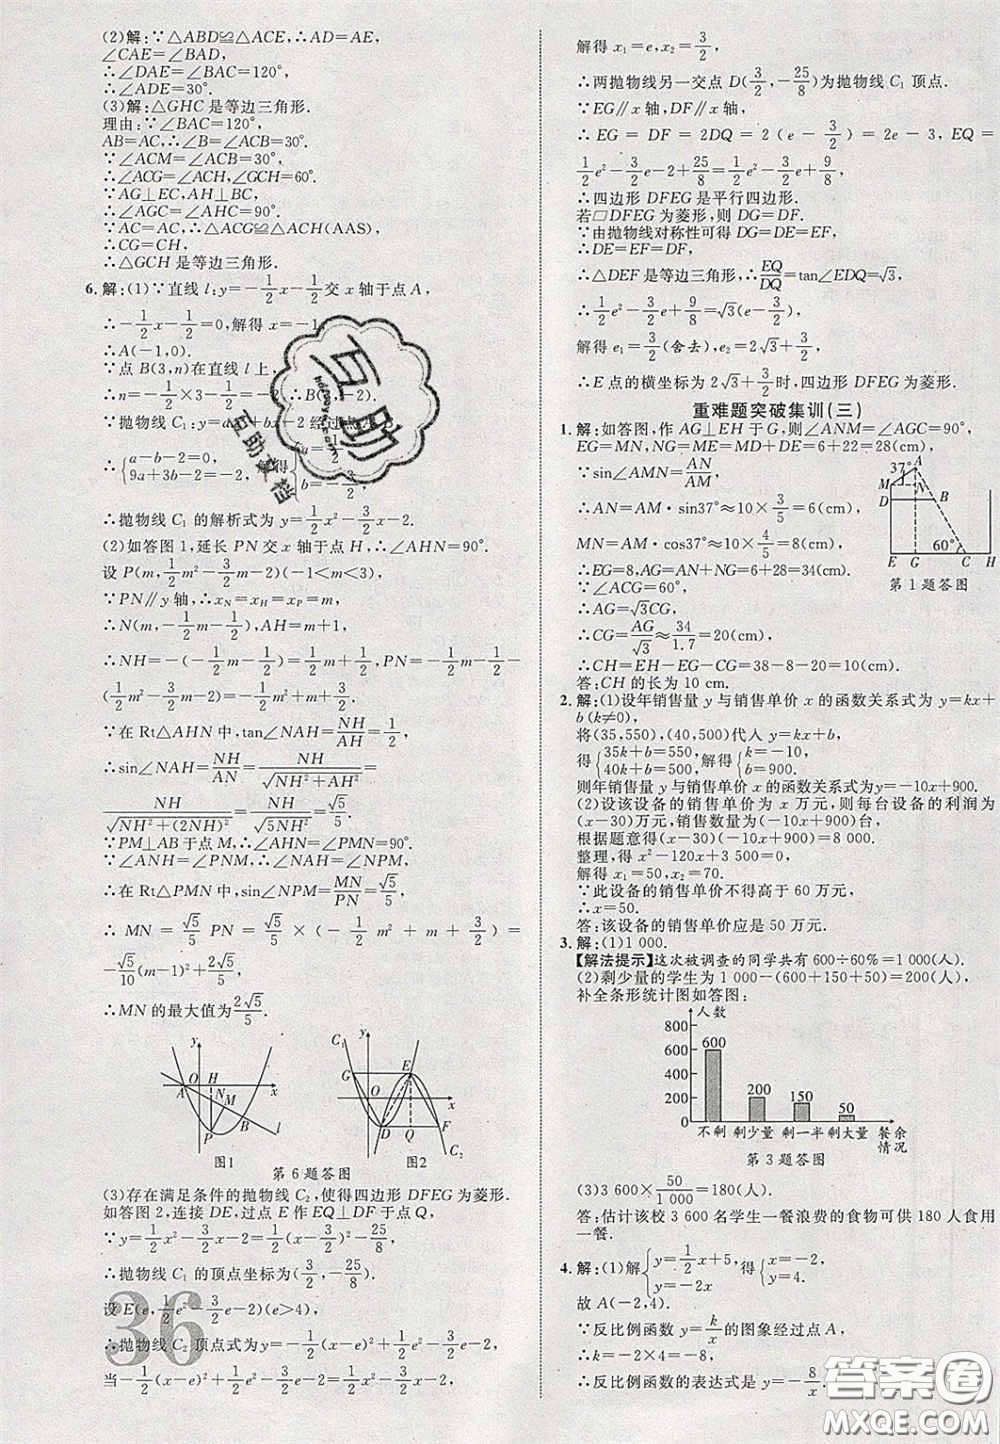 (2)解:∵△ABD≌△ACE,∴AD=AE,
∠CAE=∠BAD,
∴∠DAE=∠BAC=120°,
∴∠ADE=30°.
(3)解:△GHC是等边三角形.
理由:∵∠BAC=120°,
AB=AC,∴∠ABC=∠ACB=30°.
∵∠ACM=∠ACB=30°,
∴∠ACG=∠ACH,∠GCH=60°.
∵AG⊥EC,AH⊥BC,
∴∠AGC=∠AHC=90°.
∵AC=AC,∴△ACG≌△ACH(AAS),
∴CG=CH,
∴△GCH是等边三角形.
6.解:(1)∵直线l:y=-1/2x-1/2交x轴于点A,
∴-1/2x-1/2=0,解得x=-1
∴A(-1,0).
∵点B(3,n)在直线l上,
∴n=-1/2×3-1/2=-2,∴B(3,-2).
∵抛物线C₁:y=ax²+bx-2经过点A
∴{a-b-2=0, 9a+3b-2=-2, 得 b=-3/2,
∴抛物线C₁的解析式为y=1/2x²-3/2x-2.
(2)如答图1,延长PN交x轴于点H,∴∠AHN=90°.
设P(m,1/2m²-3/2m-2)(-1<m<3),
∵PN∥y轴,∴x_N=x_H=x_P=m,
∴N(m,-1/2m-1/2),AH=m+1,
∴NH=-(-1/2m-1/2)=1/2m+1/2,PN=-1/2m-1/2-
(1/2m²-3/2m-2)=-1/2m²+m+3/2.
∵在Rt△AHN中,tan∠NAH=NH/AH=1/2,
∴sin∠NAH=NH/AN=NH/√(NH²+AH²)=
NH/√(NH²+(2NH)²)=NH/√5NH²=√5/5.
∵PM⊥AB于点M,∴∠AHN=∠PMN=90°.
∵∠ANH=∠PNM,∴∠NPM=∠NAH,
∴在Rt△PMN中,sin∠NPM=MN/PN=√5/5,
∴MN=√5/5PN=√5/5(-1/2m²+m+3/2)=-
√5/10(m-1)²+2√5/5,
∴MN的最大值为2√5/5.
y
A O H x
N M
P B l
图1
C₁ y
G E
O x
D Q F
C₂
图2
第6题答图
(3)存在满足条件的抛物线C₂,使得四边形DFEG为菱形.
如答图2,连接DE,过点E作EQ⊥DF于点Q,
∵y=1/2x²-3/2x-2=1/2(x-3/2)²-25/8,
∴抛物线C₁的顶点坐标为(3/2,-25/8).
设E(e,1/2e²-3/2e-2)(e>4),
∴抛物线C₂顶点式为y=-1/2(x-e)²+1/2e²-3/2e-2,
当-1/2(x-e)²+1/2e²-3/2e-2=1/2x²-3/2x-2时,
36
解得x₁=e,x₂=3/2,
∴两抛物线另一交点D(3/2,-25/8)为抛物线C₁顶点.
∵EG∥x轴,DF∥x轴,
∴EG=DF=2DQ=2(e-3/2)=2e-3,EQ=
1/2e²-3/2e-2+25/8=1/2e²-3/2e+9/8,
∴四边形DFEG是平行四边形.
若▱DFEG为菱形,则DG=DF.
∵由抛物线对称性可得DG=DE=EF,
∴DE=EF=DF,
∴△DEF是等边三角形,∴EQ/DQ=tan∠EDQ=√3,
∴1/2e²-3/2e+9/8=√3(e-3/2),
解得e₁=3/2(舍去),e₂=2√3+3/2,
∴E点的横坐标为2√3+3/2时,四边形DFEG为菱形.
重难题突破集训(三)
1.解:如答图,作AG⊥EH于G,则∠ANM=∠AGC=90°,
EG=MN,NG=ME=MD+DE=6+22=28(cm)
∵sin∠AMN=AN/AM,
∴AN=AM·sin37°≈10×3/5=6(cm),
MN=AM·cos37°≈10×4/5=8(cm),
∴EG=8,AG=AN+NG=6+28=34(cm).
∵∠ACG=60°,
∴AG=√3CG,
∴CG=AG/√3≈34/1.7=20(cm),
∴CH=EH-EG-CG=38-8-20=10(cm).
答:CH的长为10 cm.
37° A
M N
D B
60°
E G C H
第1题答图
2.解:(1)设年销售量y与销售单价x的函数关系式为y=kx+
b(k≠0),
将(35,550),(40,500)代入y=kx+b,
得{35k+b=550, 40k+b=500, 解得{k=-10, b=900.
则年销售量y与销售单价x的函数关系式为y=-10x+900.
(2)设该设备的销售单价为x万元,则每台设备的利润为
(x-30)万元,销售数量为(-10x+900)台,
根据题意得(x-30)(-10x+900)=8 000.
整理,得x²-120x+3 500=0,
解得x₁=50,x₂=70.
∵此设备的销售单价不得高于60万元,
∴x=50.
答:该设备的销售单价应是50万元.
3.解:(1)1 000.
【解法提示】这次被调查的同学共有600÷60%=1 000(人).
(2)剩少量的学生为1 000-(600+150+50)=200(人),
补全条形统计图如答图:
人数
800
600
400
200
0
600 200 150 50
不剩 剩少量 剩一半 剩大量 餐余情况
第3题答图
(3)3 600×50/1 000=180(人).
答:估计该校3 600名学生一餐浪费的食物可供180人食用
一餐.
4.解:(1)解{y=1/2x+5, y=-2x 得{x=-2, y=4.
故A(-2,4).
∵反比例函数y=k/x的图象经过点A,
∴k=-2×4=-8,
∴反比例函数的表达式是y=-8/x.
互助
互助文档
答案圈
MXQE.COM